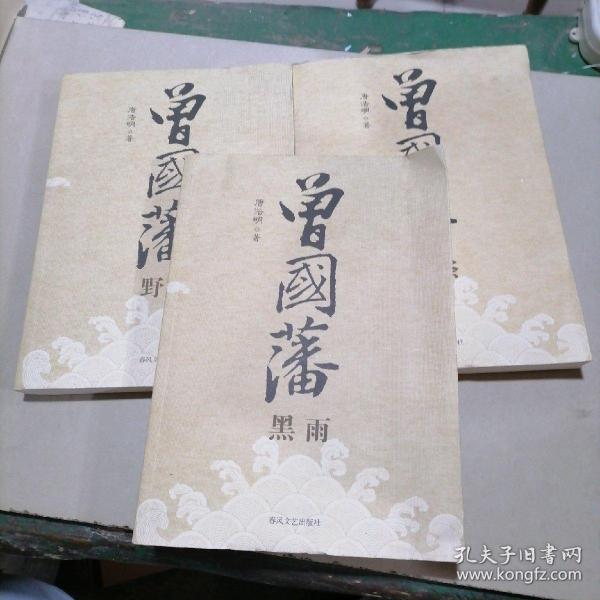 曾國藩
唐浩明 著
野
春风
曾國
唐浩明 著
曾國藩
唐浩明 著
黑雨
春风文艺出版社
孔夫子旧书网
www.kongfz.com